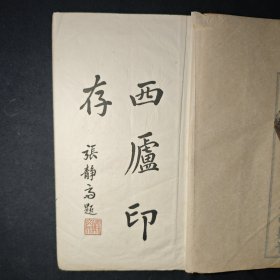 西廬印
存
張靜題